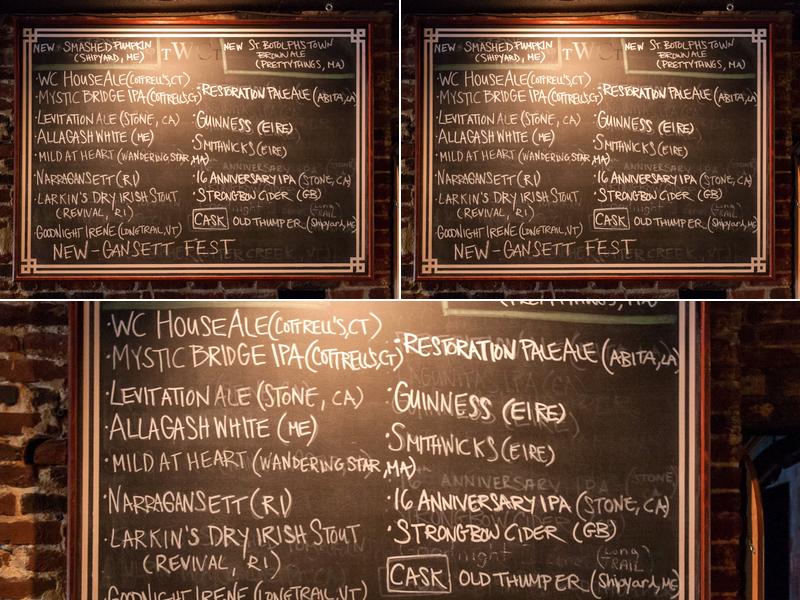 NEW SMASHED PUMPKIN
(SHIPYARD, ME)
TWCT
NEW ST. BOTOLPHS TOWN
BROWN ALE
(PRETTYTHINGS, MA)
·WC HOUSE ALE (COTTRELL'S, CT)
·MYSTIC BRIDGE IPA (COTTRELL'S, CT)
·LEVITATION ALE (STONE, CA)
·ALLAGASH WHITE (ME)
·MILD AT HEART (WANDERING STAR, MA)
·NARRAGANSETT (RI)
·LARKIN'S DRY IRISH STOUT
(REVIVAL, RI)
·GOODNIGHT IRENE (LONGTRAIL, VT)
NEW-GANSETT FEST
·RESTORATION PALE ALE (ABITA, LA)
·GUINNESS (EIRE)
·SMITHWICKS (EIRE)
·16 ANNIVERSARY IPA (STONE, CA)
·STRONGBOW CIDER (GB)
CASK OLD THUMPER (Shipyard, ME)
NEW SMASHED PUMPKIN
(SHIPYARD, ME)
TWCT
NEW ST. BOTOLPHS TOWN
BROWN ALE
(PRETTYTHINGS, MA)
·WC HOUSE ALE (COTTRELL'S, CT)
·MYSTIC BRIDGE IPA (COTTRELL'S, CT)
·LEVITATION ALE (STONE, CA)
·ALLAGASH WHITE (ME)
·MILD AT HEART (WANDERING STAR, MA)
·NARRAGANSETT (RI)
·LARKIN'S DRY IRISH STOUT
(REVIVAL, RI)
·GOODNIGHT IRENE (LONGTRAIL, VT)
NEW-GANSETT FEST
·RESTORATION PALE ALE (ABITA, LA)
·GUINNESS (EIRE)
·SMITHWICKS (EIRE)
·16 ANNIVERSARY IPA (STONE, CA)
·STRONGBOW CIDER (GB)
CASK OLD THUMPER (Shipyard, ME)
(PRETTYTHINGS, MA)
·WC HOUSE ALE (COTTRELL'S, CT)
·MYSTIC BRIDGE IPA (COTTRELL'S, CT)
·LEVITATION ALE (STONE, CA)
·ALLAGASH WHITE (ME)
·MILD AT HEART (WANDERING STAR, MA)
·NARRAGANSETT (RI)
·LARKIN'S DRY IRISH STOUT
(REVIVAL, RI)
·GOODNIGHT IRENE (LONGTRAIL, VT)
·RESTORATION PALE ALE (ABITA, LA)
·GUINNESS (EIRE)
·SMITHWICKS (EIRE)
ANNIVERSARY IPA (STONE,
·16 ANNIVERSARY IPA (STONE, CA)
·STRONGBOW CIDER (GB)
Goodnight (Long
TRAIL
CASK OLD THUMPER (Shipyard, ME)